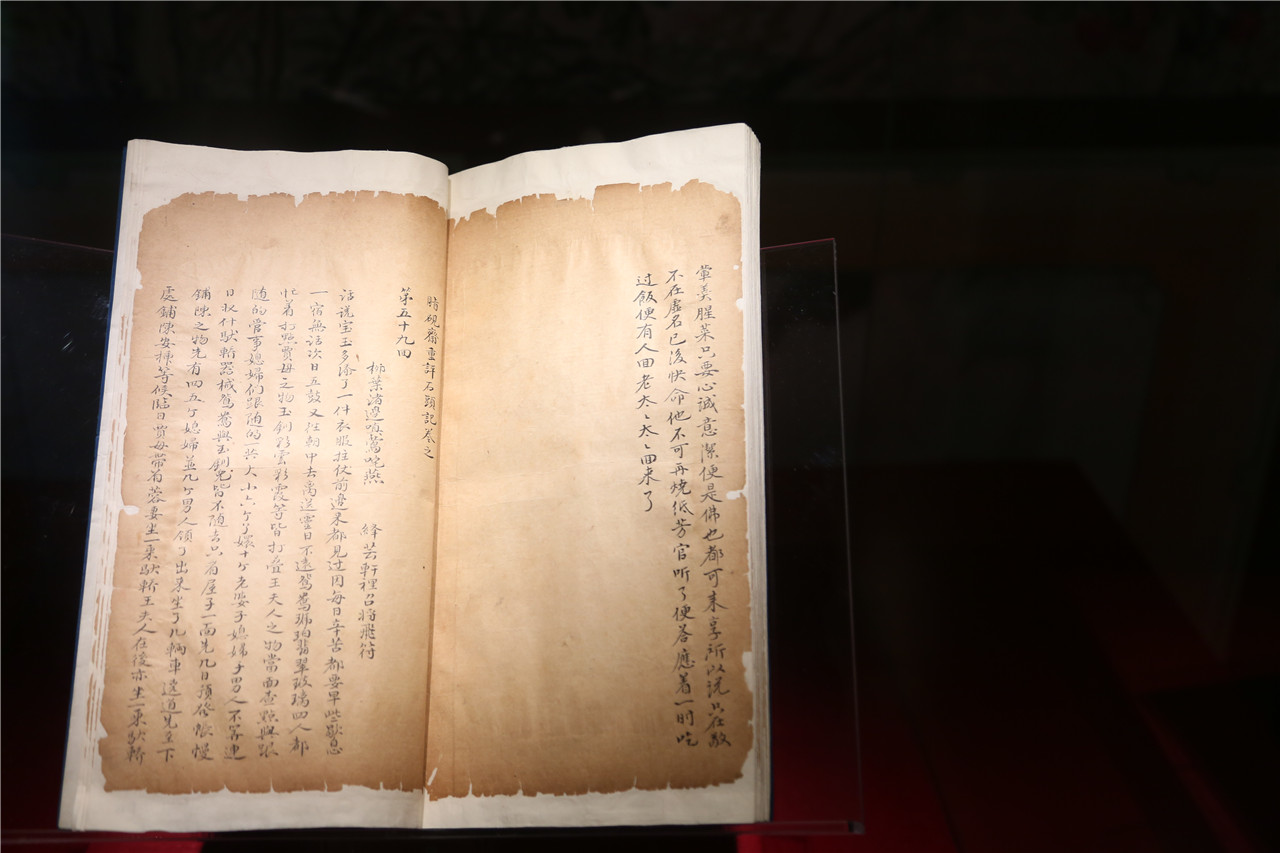 葷羹腥菜只要心誠意潔便是佛也都可来享所以説只在敬
不在虚名已後快命他不可再燒纸芳官听了便荅應着一时吃
过飯便有人回老太〻太〻回来了
脂硯齋重評石頭記卷之
第五十九回
柳葉渚邉嗔鶯咤燕 絳芸軒裡召將飛符
話说宝玉多添了一件衣服拄杖前邉来都見过因每日辛苦都要早些歇息
一宿無話次日五鼓又往朝中去离送灵日不遠鴛鴦琥珀翡翠玻璃四人都
忙着打點賈母之物玉釧彩雲彩霞等皆打疊王夫人之物當面查點與跟
随的管事媳婦们跟随的一共大小六个丫嬛十个老婆子媳婦子男人不筭連
日收什馱轎器械鴛鴦與玉釧児皆不随去只看屋子一面先几日預發帳幔
鋪陳之物先有四五个媳婦並几个男人領了出来坐了几輌車遶道先至下
處鋪陳安插等候臨日賈母帶着蓉妻坐一乘馱轎王夫人在後亦坐一乘馱轎